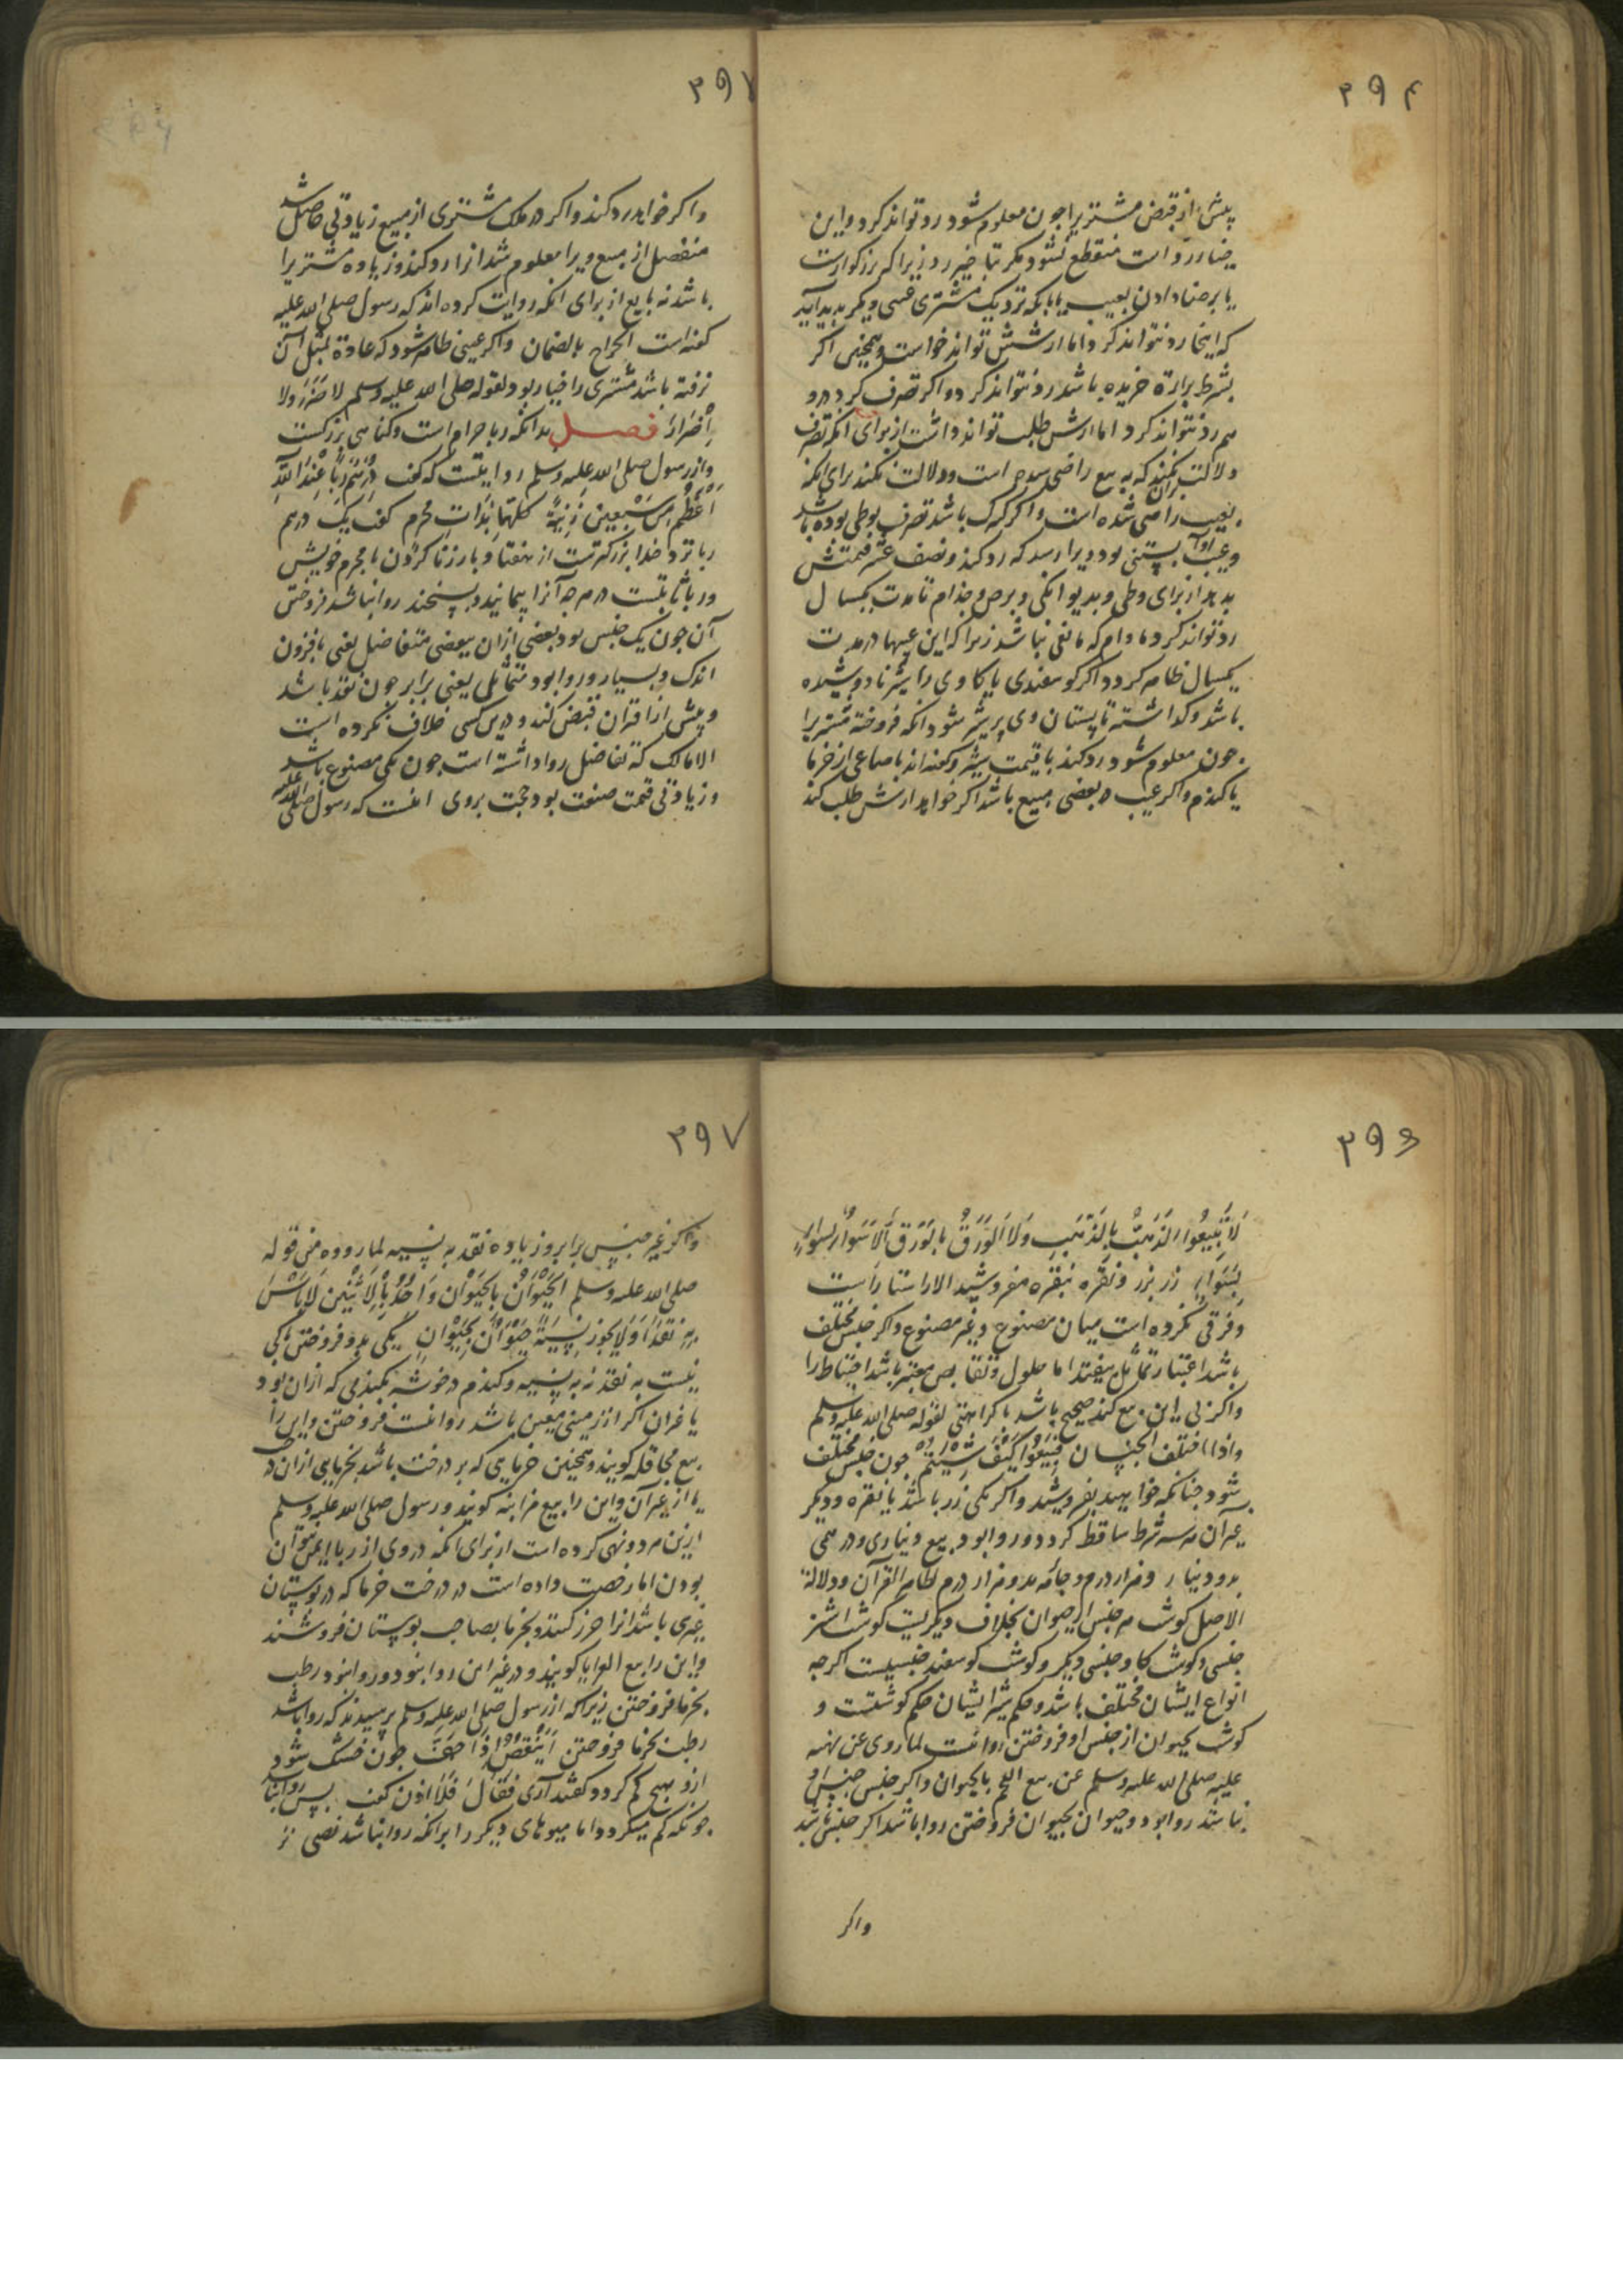 ۳۹۴
پیش از قبض مشتریرا چون معلوم شود رد تواند کرد و این
خیار رد است منقطع نشود مگر بتاخیر رد زیرا که
یا برضا دادن بعیب یا بانکه نزدیک مشتری عیبی دیگر پدید آید
که اینجا رد نتواند کرد اما ارشش تواند خواست و همچنین اگر
بشرط براءة خریده باشد رد نتواند کرد و اگر تصرف کرد درو
هم رد نتواند کرد اما ارش طلب تواند داشت از برای انکه تصرف
دلالت کند بران که به بیع راضی است و دلالت نکند برای انکه
بعیب راضی شده است و اگر کنیزک باشد تصرف بوطی بوده باشد
و عیب او آبستنی بود ویرا رسد که رد کند و نصف عشر قیمتش
بدهد از برای وطی و بدیوانگی و برص و جذام تا مدت یکسال
رد تواند کرد مادام که مانعی نباشد زیرا که این عیبها در مدت
یکسال ظاهر کردد و اگر کوسفندی یا کاوی را شیر نادوشیده
باشد و کذاشته تا پستان وی پر شیر شود انکه فروخته مشتریرا
چون معلوم شود رد کند با قیمت شیر و کفته‌اند با صاعی از خرما
یا کندم و اگر عیب در بعضی مبیع باشد اگر خواهد ارش طلب کند
۳۹
و اگر خواهد رد کند و اگر در ملک مشتری از مبیع زیادتی حاصل شد
منفصل از مبیع ویرا معلوم شد انرا رد کند و زیاده مشتریرا
باشد نه بایع از برای انکه روایت کرده‌اند که رسول صلی الله علیه
کفته است الخراج بالضمان و اگر عیبی ظاهر شود که عادة بمثل آن
نرفته باشد مشتری را خیار بود لقوله صلی الله علیه وسلم لا ضَرَرَ ولا
اِضْرارَ فصل بدانکه ربا حرام است و کناهی بزرکست
و از رسول صلی الله علیه وسلم روایتست که کفت دِرْهَمُ رِباً عِنْدَ اللهِ
اَعْظَمُ مِنْ سَبْعِین زِنْیَةً کلّها بِذاتِ مَحْرم کفت یک درهم
ربا نزد خدا بزرکترست از هفتاد بار زنا کردن با محرم خویش
و ربا ثابتست در هر چه آنرا پیمایند و بسنجند روا نباشد فروختن
آن چون یک جنس بود بعضی ازان ببعضی متفاضل یعنی بافزون
اندک و بسیار و روا بود متماثل یعنی برابر چون نقد باشد
و پیش از افتراق قبض کنند و درین کسی خلاف نکرده است
الا مالک که تفاضل روا داشته است چون یکی مصنوع باشد
و زیادتی قیمت صنعت بود حجت بروی انست که رسول صلی الله علیه
۳۹۵
لا تَبیعُوا الذّهبَ بالذّهَبِ وَلا الوَرَقَ بالوَرَق اِلّا سَواءً بسَواء
زر بزر و نقره بنقره مفروشید الا راستا راست
و فرقی نکرده است میان مصنوع و غیر مصنوع و اگر جنس مختلف
باشد اعتبار تماثل بیفتد اما حلول و تقابض معتبر باشد احتیاط را
و اگر بی این بیع کند صحیح باشد با کراهتی لقوله صلی الله علیه وسلم
و اذا اختلف الجنسان فَبیعُوا کَیْفَ شِئتُم چون جنس مختلف
شود چنانکه خواهید بفروشید و اگر یکی زر باشد یا نقره و دیکر
غیر آن هر سه شرط ساقط کردد و روا بود بیع دیناری و درهمی
بدو دینار و هزار درم و جامه بدو هزار درم لظاهر القرآن و دلالة
الاصل کوشت هر جنس از حیوان بخلاف دیکریست کوشت اشتر
جنسی و کوشت کاو جنسی دیکر و کوشت کوسفند جنسیست اگرچه
انواع ایشان مختلف باشد و حکم شیر ایشان حکم کوشتست و
کوشت بحیوان از جنس او فروختن روا نیست لما روی عن نهیه
علیه صلی الله علیه وسلم عن بیع اللحم بالحیوان و اگر جنس جنس او
نباشد روا بود و حیوان بحیوان فروختن روا باشد اگر جنس باشد
واگر
۳۹۷
و اگر غیر جنس برابر و زیاده نقد به نسیه لما رووه من قوله
صلی الله علیه وسلم الحَیْوانُ بالحَیْوان واحِدٌ باِثْنَیْنِ لا بَأسَ
بِهِ نَقْداً وَلا یَجُوز نَسِیَةً حَیْوانٌ بِحَیْوانٍ یکی بدو فروختن باکی
نیست به نقد نه به نسیه و کندم در خوشه بکندمی که ازان بود
یا غیر آن اگر از زمینی معین باشد روا نیست فروختن و این را
بیع محاقله کویند و همچنین خرمایی که بر درخت باشد بخرمایی ازان درخت
یا از غیر آن و این را بیع مزابنه کویند و رسول صلی الله علیه وسلم
ازین هر دو نهی کرده است از برای انکه در وی از ربا ایمن نتوان
بودن اما رخصت داده است در درخت خرما که در بوستان
غیری باشد انرا حرز کنند و بخرما بصاحب بوستان فروشند
و این را بیع العرایا کویند و در غیر این روا نبود و روا نبود رطب
بخرما فروختن زیرا که از رسول صلی الله علیه وسلم پرسیدند که روا باشد
رطب بخرما فروختن اَیَنْقُصُ اِذا جَفَّ چون خشک شود
ازو هیچ کم کردد کفتند آری فَقالَ فَلا اذن کفت پس روا نباشد
چونکه کم میکردد اما میوهای دیکر را بر انکه روا نباشد نصی نه